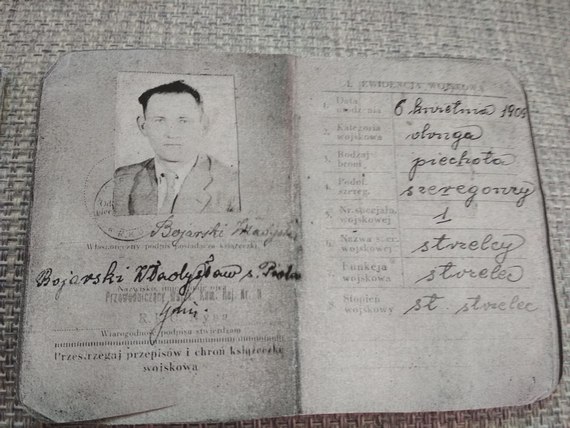 Bojarski Władysław
Własnoręczny podpis posiadacza książeczki
Bojarski Władysław s. Piotra
Nazwisko, imię
Przewodniczący Kom. Rej. Nr.
Wiarogodność podpisu stwierdzam
Przestrzegaj przepisów i chroń książeczkę
wojskową
I. EWIDENCJA WOJSKOWA
1. Data urodzenia 6 kwietnia
2. Kategoria wojskowa druga
3. Rodzaj broni piechota
4. Podof. szereg. szeregowy
5. Nr specjaln. wojskowej 1
6. Nazwa wojskowej strzelcy
Funkcja wojskowa strzelec
8. Stopień wojskowy st. strzelec